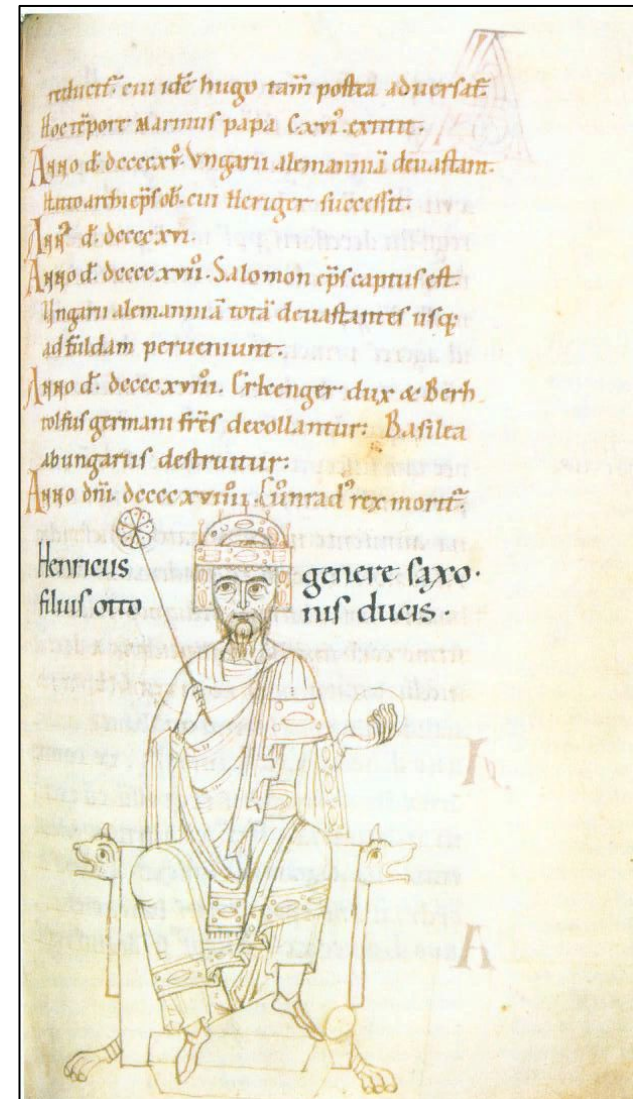 reducit᷒. cui idē hugo tam̄ postea adversat᷒.
Hoc tēpore Marinus papa C.xvi᷒. extitit.
Anno d̄. dccccxv᷒. Vngarii alemanniā devastant.
Hatto archiep̄s ob᷒. cui Heriger successit.
Ann᷒ d̄. dccccxvi.
Anno d̄. dccccxvii᷒. Salomon ep̄s captus est.
Ungarii alemanniā totā devastantes usq;
ad fuldam perveniunt.
Anno d̄. dccccxviii᷒. Erkenger dux & Berh
tolfus germani fr̄es decollantur: Basilea
ab ungariis destruitur:
Anno dn̄i. dccccxviiii. Cuonrad᷒ rex morit᷒.
Henricus genere saxo.
filius otto nis ducis.